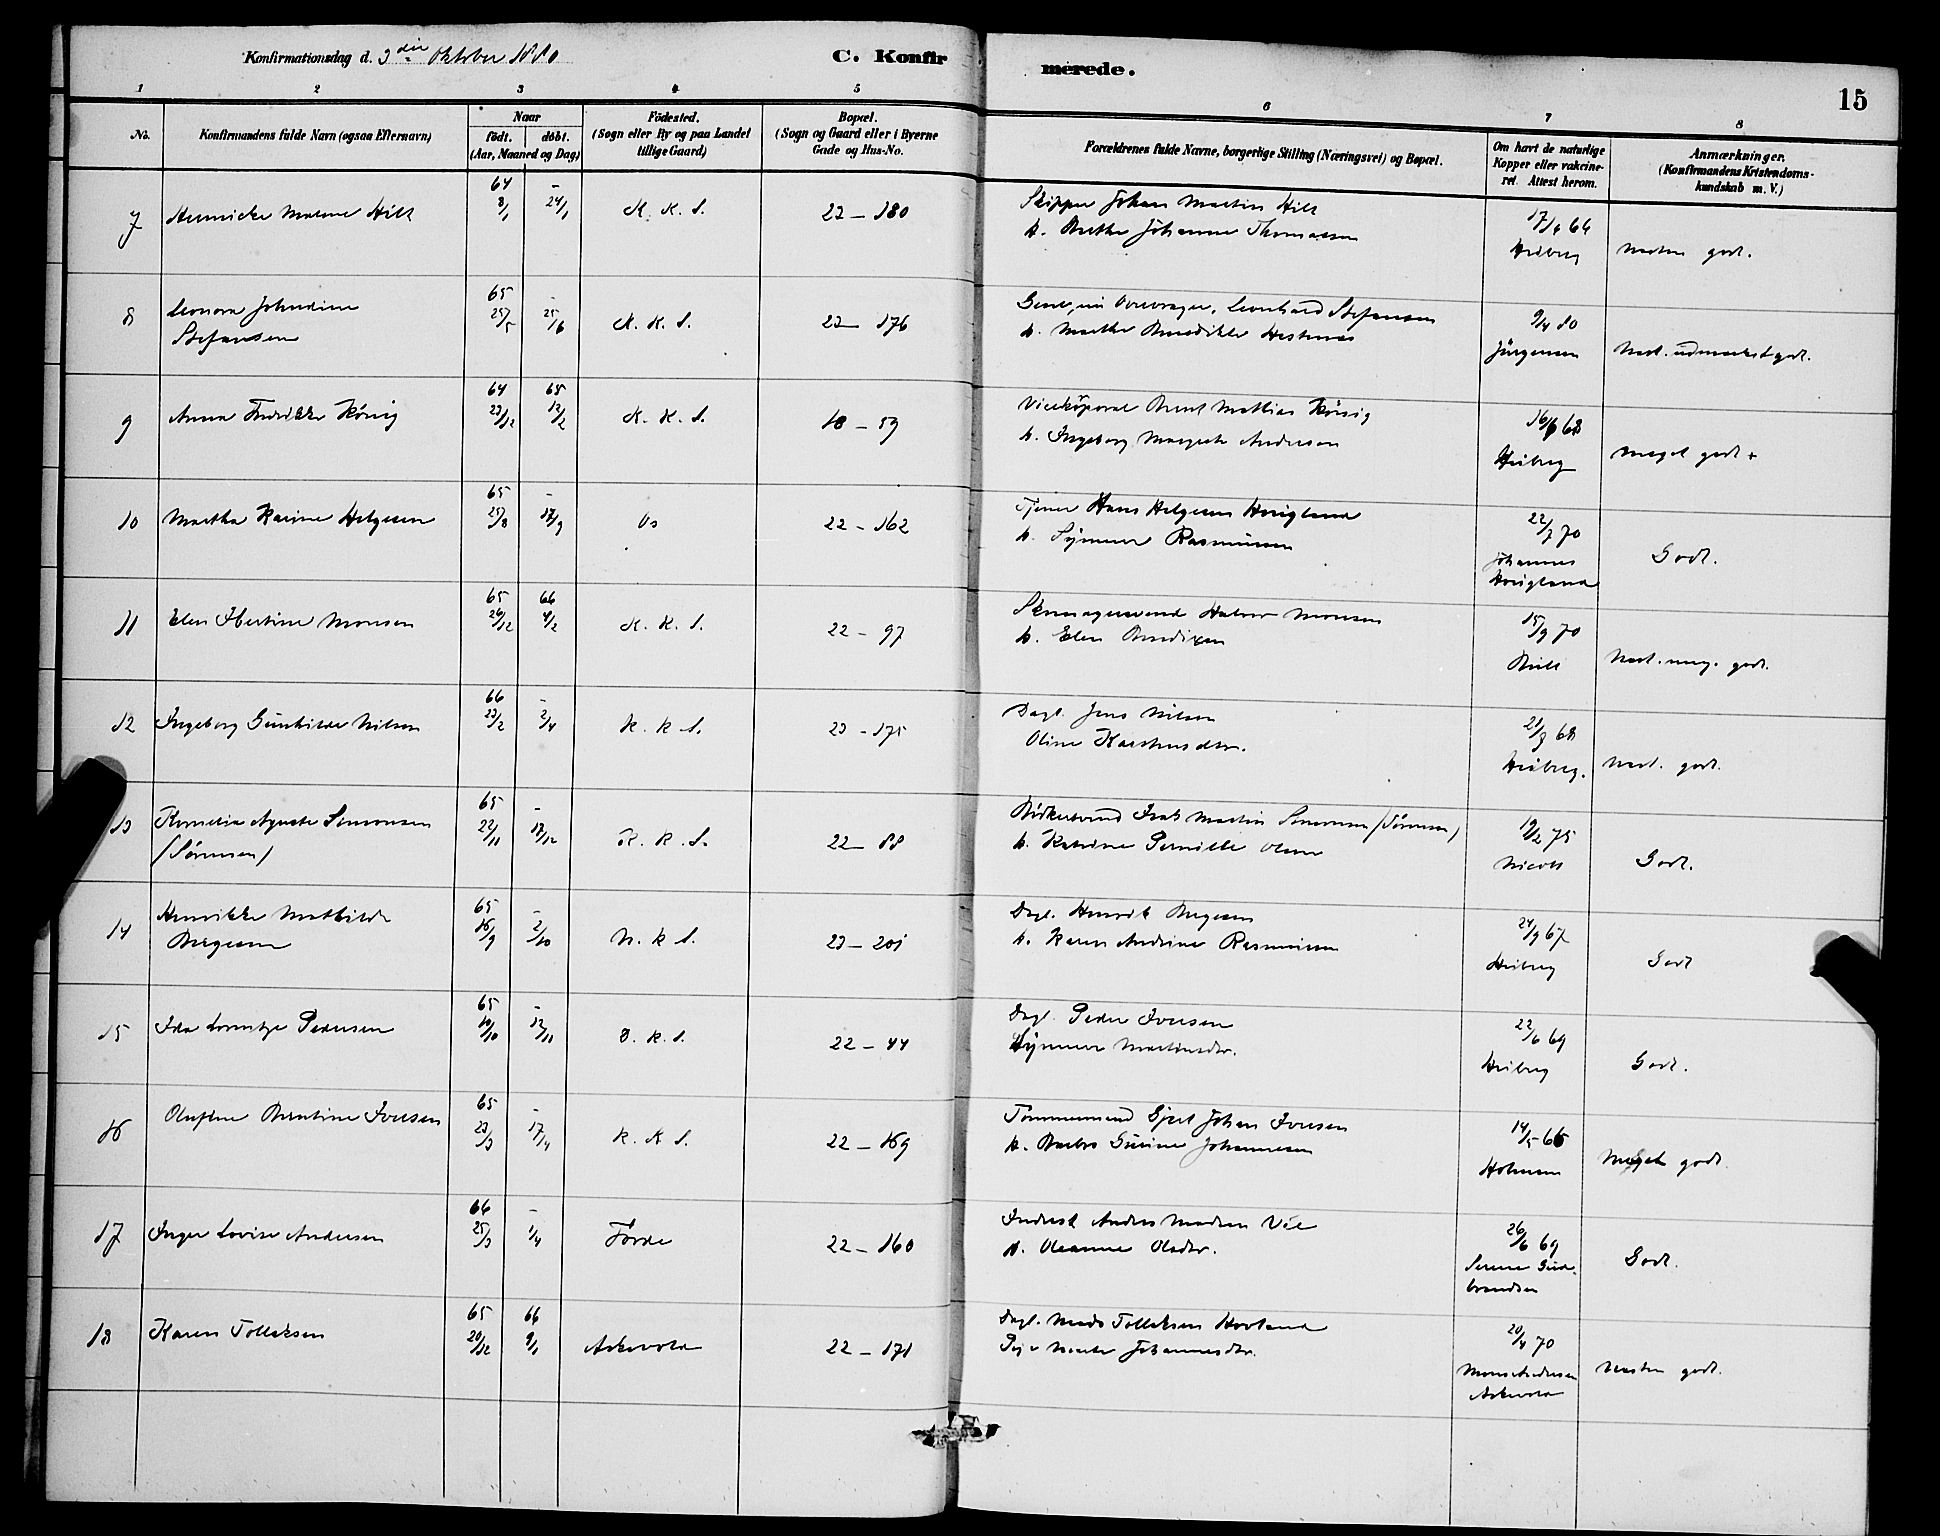 Konfirmationsdag d. 3die Oktober 1880
C. Konfirmerede.
15
1 2 3 4 5 6 7 8
No.
Konfirmandens fulde Navn (ogsaa Efternavn)
Naar
födt. döbt.
(Aar, Maaned og Dag)
Födested.
(Sogn eller By og paa Landet
tillige Gaard)
Bopæl.
(Sogn og Gaard eller i Byerne
Gade og Hus-No.
Forældrenes fulde Navne, borgerlige Stilling (Næringsvei) og Bopæl.
Om havt de naturlige
Kopper eller vakcine-
ret. Attest herom.
Anmærkninger.
(Konfirmandens Kristendoms-
kundskab m. V.)
7 Hilt 64 8/1 - 24/1 K. K. S. 23 - 180
Skipper Johan Martin Hilt
h. Johanne Thomassen
17/6 66 Heiberg
næsten godt.
8 Leonora
Stefansen
65 25/5 - 25/6 K. K. S. 23 - 176
Leonhard Stefansen
h. Marthe Hestenes
9/4 80 Jürgensen
Næst. udmærket godt.
9 Anna Fredrikke König 64 23/12 65 12/2 K. K. S. 18 - 59
Mathias König
h. Ingeborg Margrete Andersen
16/6 68 Heiberg
meget godt +
10 Martha Karine Helgesen 65 25/8 - 17/9 Os 22 - 162
Tjener Hans Helgesen Hougland
h. Synneve Rasmussen
22/7 70 Johannes
Hougland
Godt.
11 Elen Monsen 65 26/12 66 4/2 K. K. S. 22 - 97
Halvor Monsen
h. Elen Bendixen
15/9 70
Næst. meg. godt.
12 Ingeborg Gunhilde Nilsen 66 23/2 - 2/4 K. K. S. 23 - 175
Dagl. Jens Nilsen
Oline Karstensdtr.
21/8 68 Heiberg.
Næst. godt.
13 Kornelia Agnete Simonsen
(Sörensen)
65 22/11 - 17/12 K. K. S. 22 - 88
Bödkersvend Isak Martin Simonsen (Sörensen)
h. Katrine Pernille Olsen
19/2 75
Godt.
14 Henrikke Mathilde
Birgesen
65 16/9 - 2/10 N. K. S. 23 - 201
Dagl. Henrik Birgesen
h. Karen Andrine Rasmussen
24/9 67 Heiberg
Godt
15 Ida Pedersen 65 10/10 - 12/11 D. K. S. 22 - 44
Dagl. Peder Iversen
Synneve Martinsdtr.
22/6 69 Heiberg
Godt.
16 Berntine Iversen 65 23/3 - 17/4 K. K. S. 22 - 169
Tömmermand Gjert Johan Iversen
h. Johannesen
14/5 66 Holmsen
Meget godt.
17 Inger Lovise Andersen 66 25/3 - 1/4 Förde 22 - 160
Inderst Anders Madsen Vie
h. Oleanne Olsdtr.
26/6 69
Gud-
brandsen
Godt.
18 Karen Tollaksen 65 20/12 66 9/1 Askevold 22 - 171
Dagl. Mads Tollaksen Hovland
Pige Marte Johannesdtr.
20/4 70
Mons Andersen
Askevold
Næsten godt.